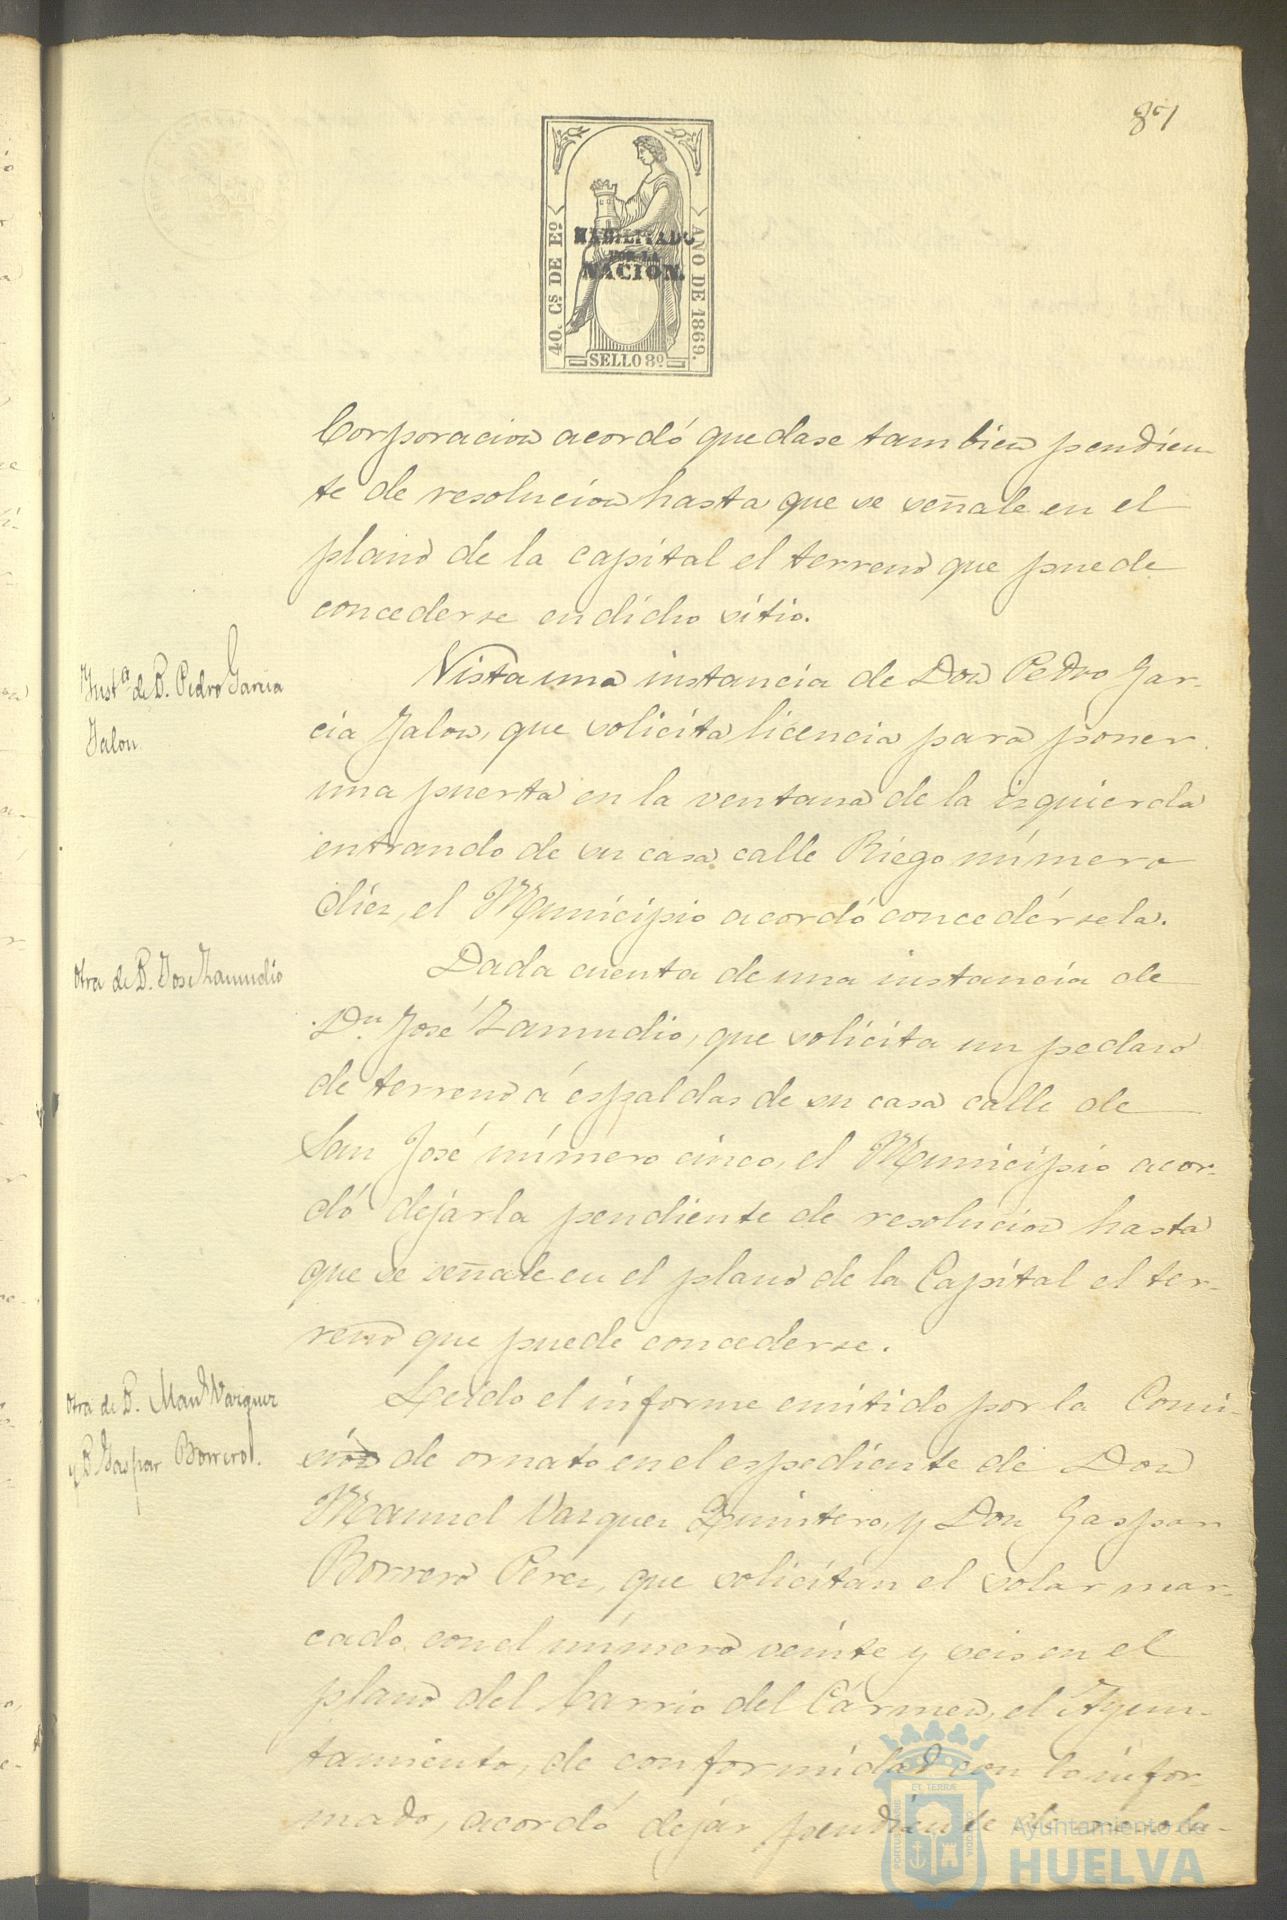 40. Cs DE Eo
AÑO DE 1869.
HABILITADO
POR LA
NACION.
SELLO 8º
Corporacion acordó quedase tambien pendien-
te de resolucion hasta que se señale en el
plano de la capital el terreno que puede
concederse en dicho sitio.
Instª de D. Pedro Garcia
Jalon.
Vista una instancia de Don Pedro Gar-
cia Jalon, que solicita licencia para poner
una puerta en la ventana de la izquierda
entrando de su casa calle Riego número
diez, el Municipio acordó concedérsela.
Otra de D. Jose Zamudio
Dada cuenta de una instancia de
Dn. José Zamudio, que solicita un pedazo
de terreno á espaldas de su casa calle de
San José número cinco, el Municipio acor-
dó dejarla pendiente de resolucion hasta
que se señale en el plano de la Capital el ter-
reno que puede concederse.
Otra de D. Manl Vazquez
y D. Gaspar Borrero.
Leido el informe emitido por la Comi-
sion de ornato en el espediente de Don
Manuel Vazquez Quintero, y Don Gaspar
Borrero Perez, que solicitan el solar mar-
cado con el número veinte y seis en el
plano del barrio del Cármen, el Ayun-
tamiento, de conformidad con lo infor-
mado, acordó dejar pendiente de resolu-
PORTUS MARIS
ET TERRÆ
CUSTODIA
Ayuntamiento de
HUELVA